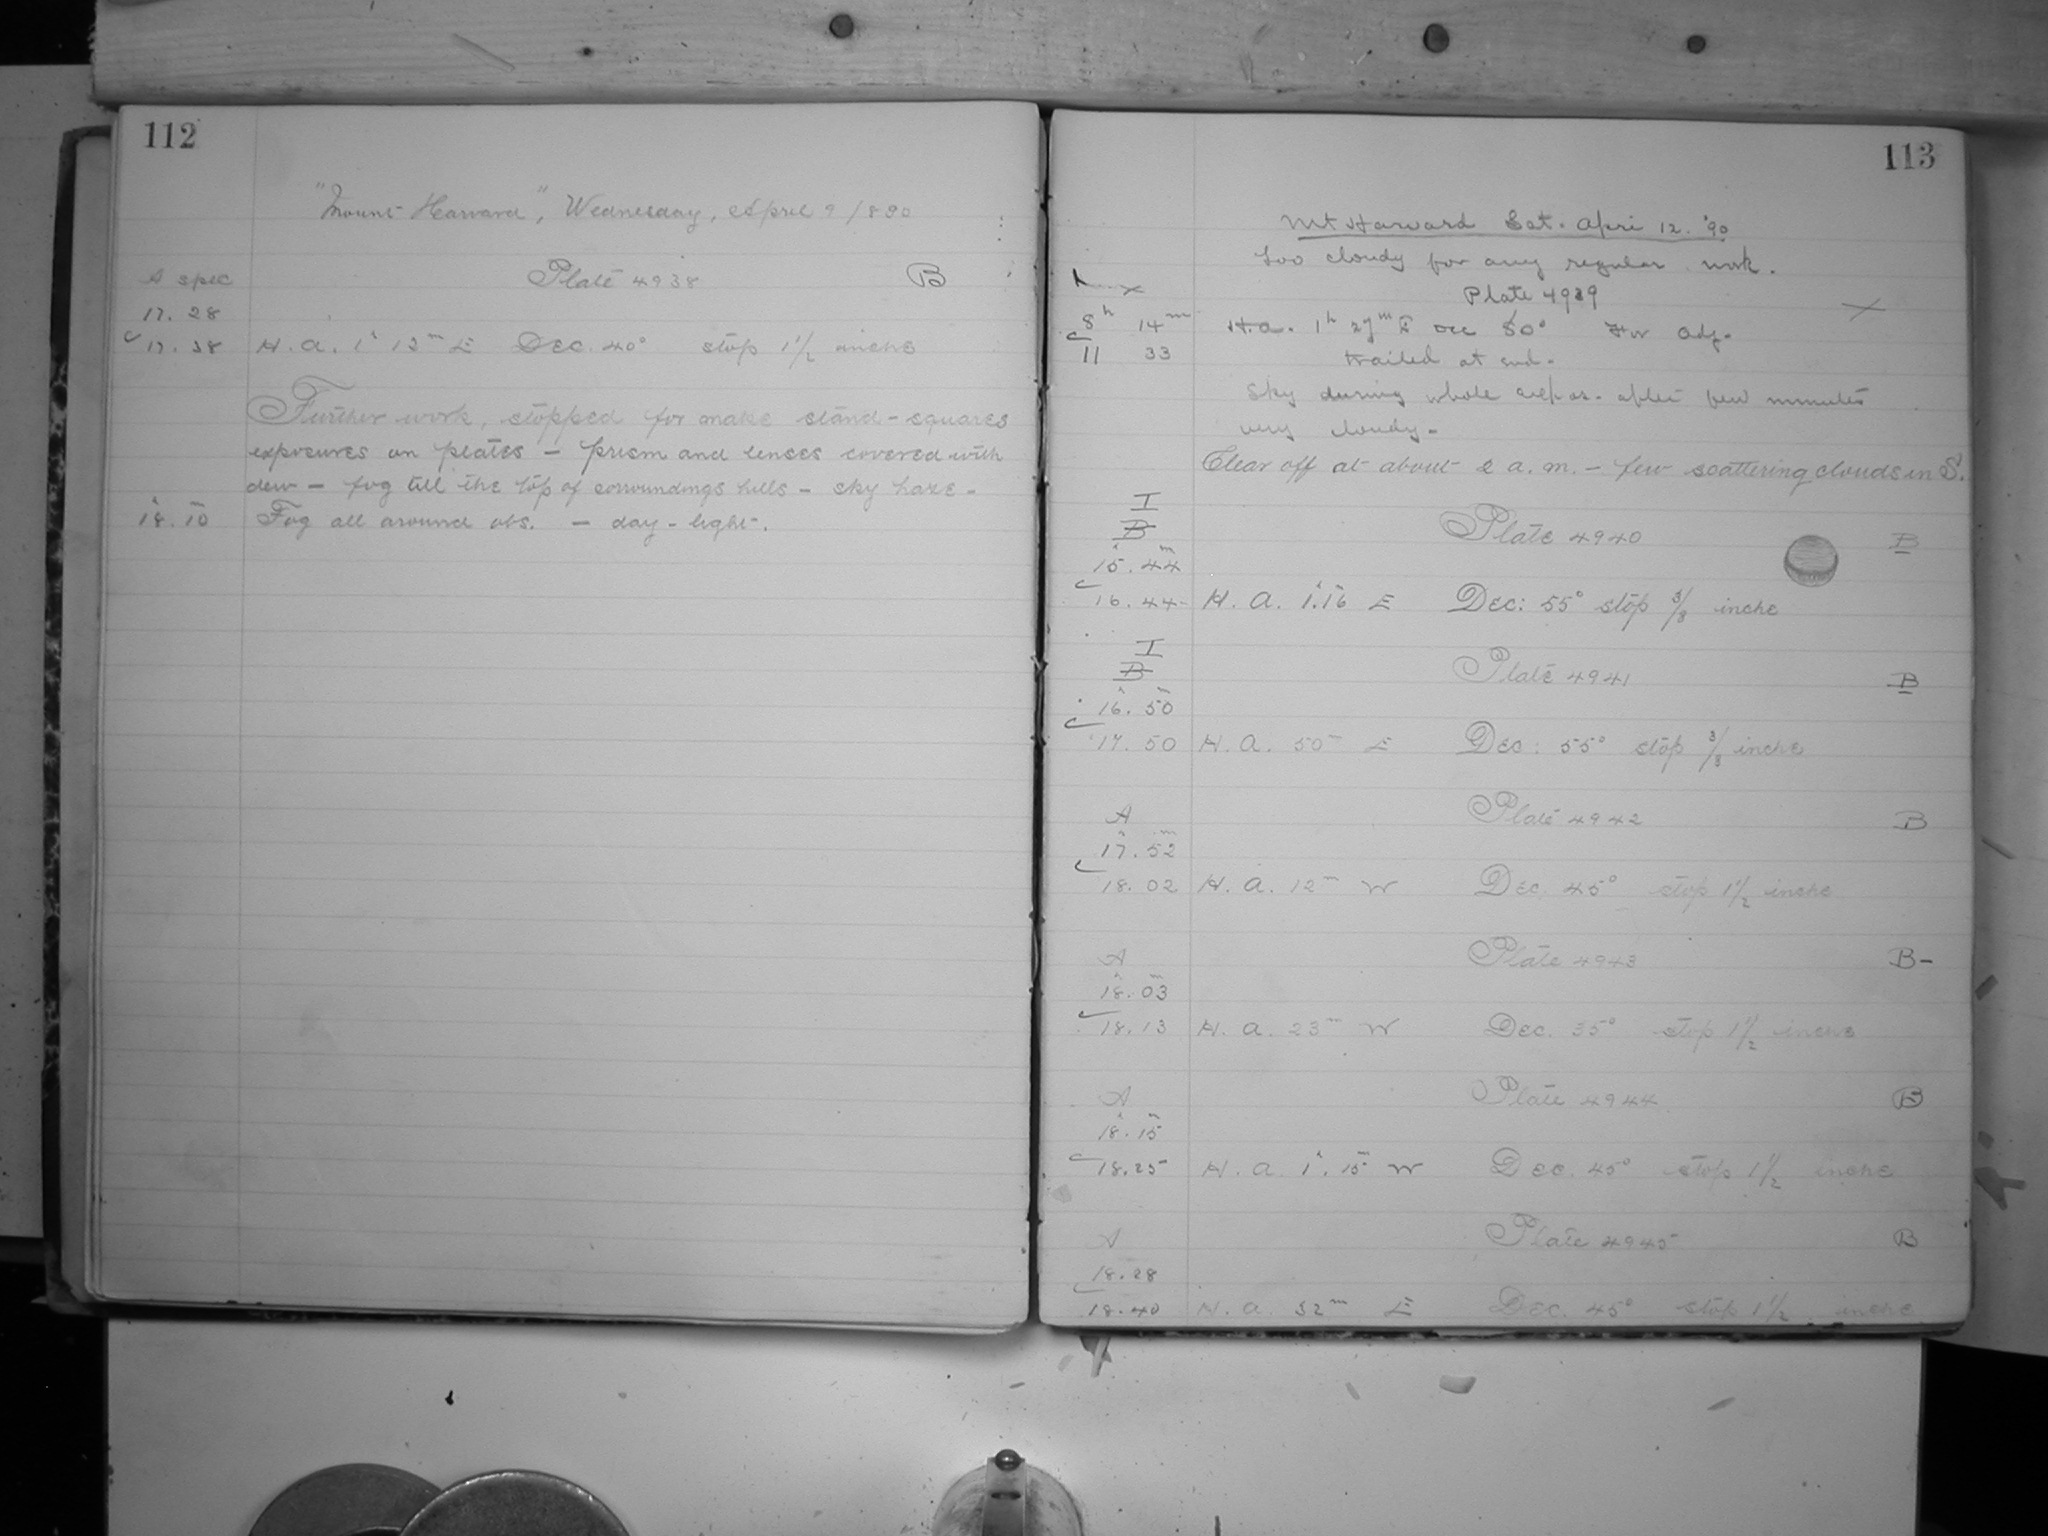 112
"Mount Harvard", Wednesday, April 9/890
A spec Plate 4938 B
17. 28
17. 38 H. a. 1h 12m E Dec. 40° stop 1 1/2 inche
Further work, stopped for make stand - squares
exposures on plates - prism and lenses covered with
dew - fog till the top of surroundings hills - sky haze -
18h. 10m Fog all around obs. - day-light.
113
Mt Harvard Sat. Apri 12. '90
Too cloudy for any regular work.
Plate 4939 X
8h 14m H.a. 1h 27m E Dec 80° For Adj.
11 33 trailed at end.
Sky during whole expos. after few minutes
very cloudy -
Clear off at about 2 a.m. - few scattering clouds in S.
I
B Plate 4940 B
15h. 44m
16. 44 H. a. 1h. 16m E Dec: 55° stop 3/8 inche
I
B Plate 4941 B
16h. 50m
17. 50 H. a. 50m E Dec: 55° stop 3/8 inche
A Plate 4942 B
17h. 52m
18. 02 H. a. 12m W Dec. 45° stop 1 1/2 inche
A Plate 4943 B-
18h. 03m
18. 13 H. a. 23m W Dec. 35° stop 1 1/2 inche
A Plate 4944 B
18h. 15m
18. 25 H. a. 1h. 15m W Dec. 45° stop 1 1/2 inche
A Plate 4945 B
18. 28
18. 40 H. a. 32m E Dec. 45° stop 1 1/2 inche